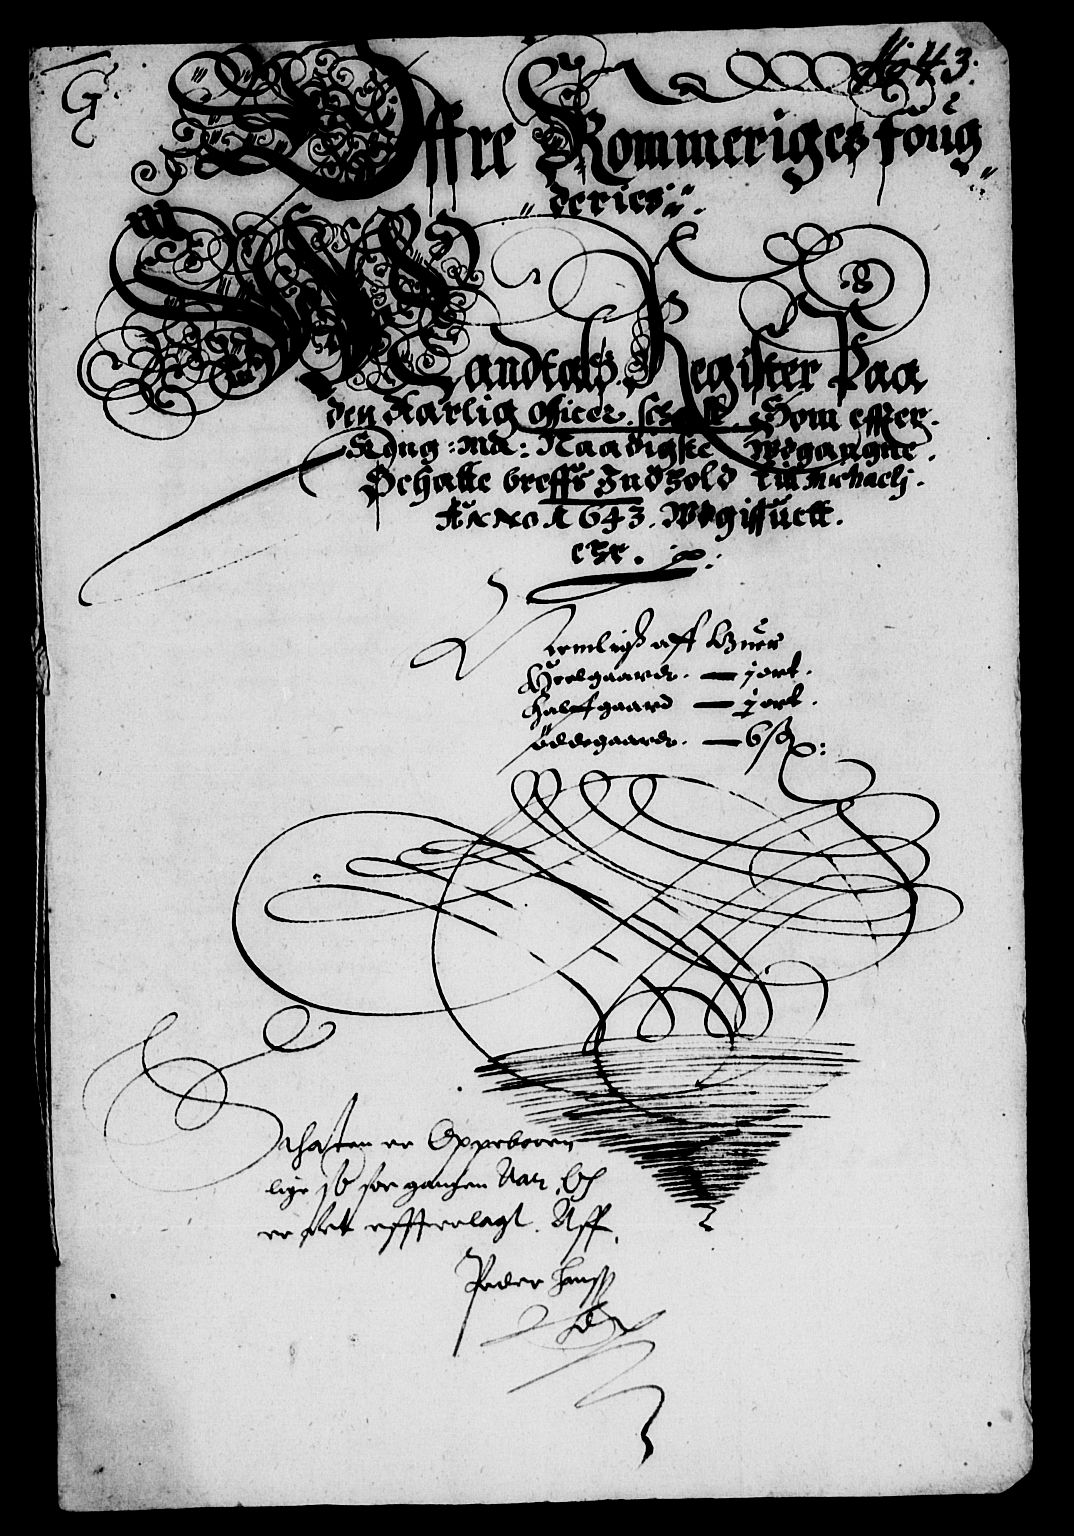 N: 43.
G.
Øffre Rommeriges foug
deries
Mandtals Register Paa
den Aarlig officer schatt, Som effter
Kong: Ma: Naadigste Wdgangne
Schatte breffs Indhold till Michaelj
Anno 1643. Wdgiffuett
er.
Nemligh aff Huer
Heelgaard — j ort.
Halfgaard — ort.
Øddegaard — 6 s
Schatten er Oppeboren
lige so for gansen Aar, Och
er det effterlagt. Aff
Peder Hanss